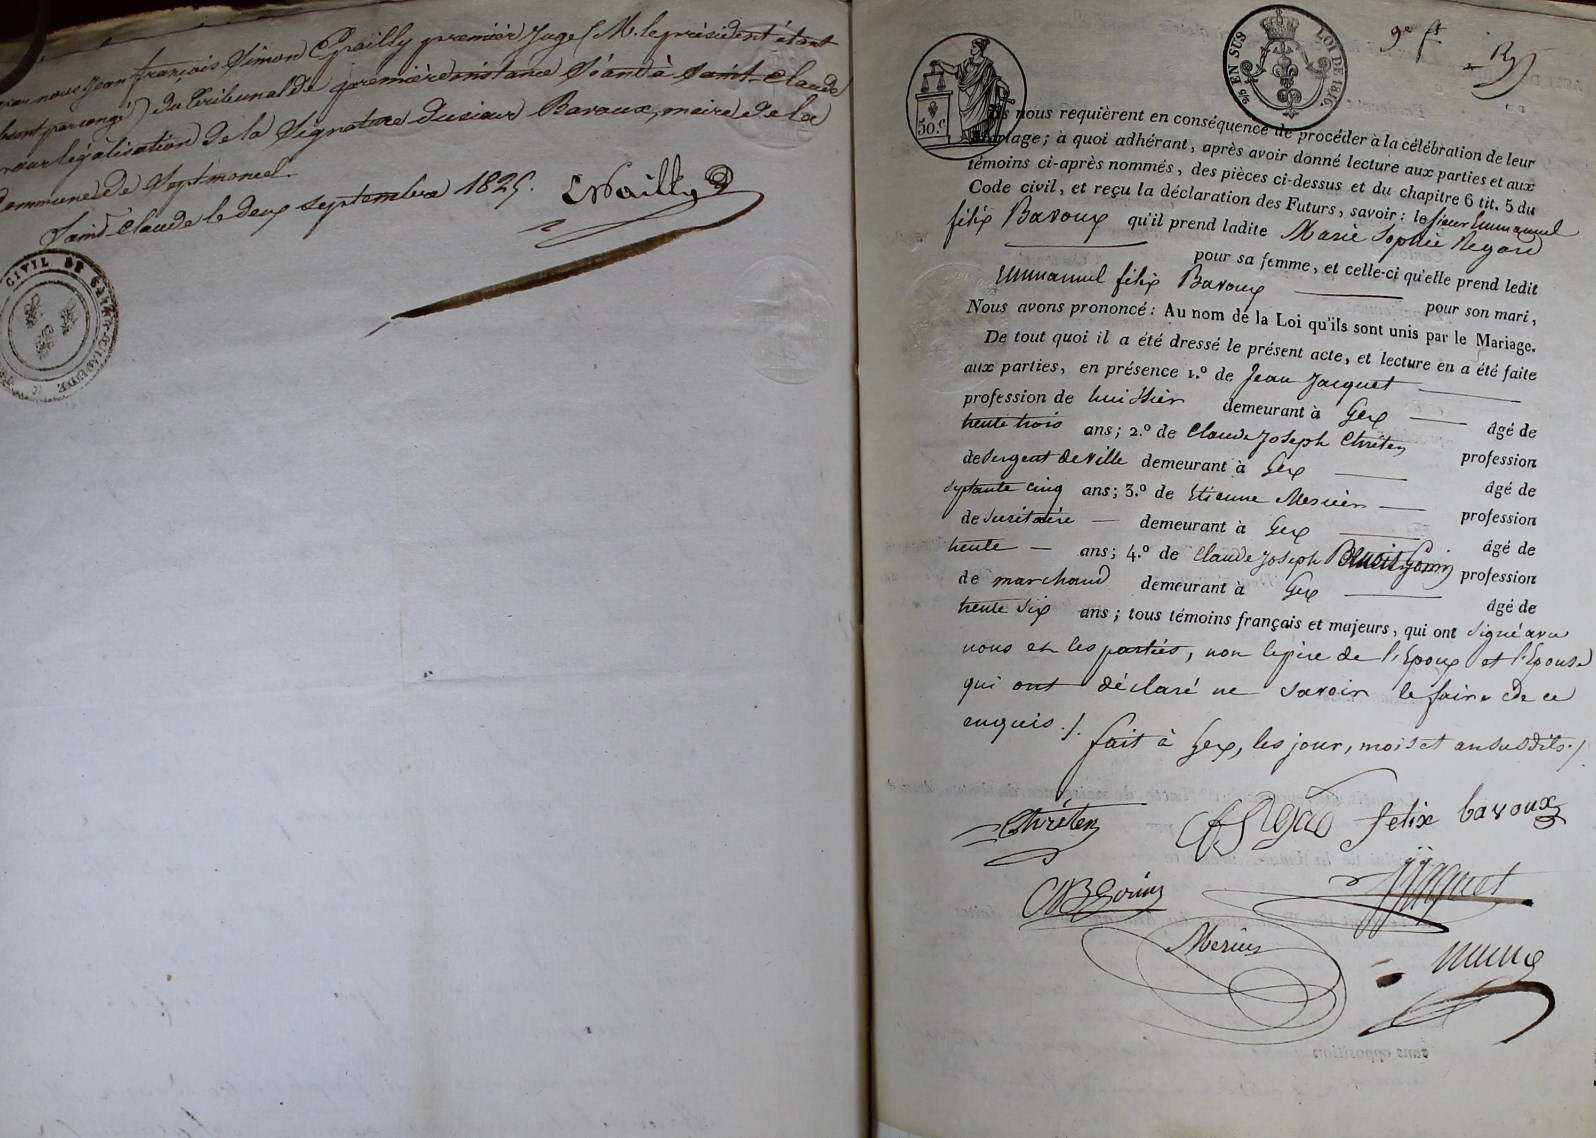 par nous Jean François Simon premier Juge (M. le président étant
absent par congé) du Tribunal de première instance Séant à Saint-Claude
pour légalisation de la Signature du sieur Bavoux, maire de la
Commune de Septmoncel.
Saint-Claude le deux septembre 1825.
CIVIL DE
50 C
EN SUS
LOI DE 1816.
9e ft
Ils nous requièrent en conséquence de procéder à la célébration de leur
mariage ; à quoi adhérant, après avoir donné lecture aux parties et aux
témoins ci-après nommés, des pièces ci-dessus et du chapitre 6 tit. 5 du
Code civil, et reçu la déclaration des Futurs, savoir : le sieur Emmanuel
félix Bavoux qu'il prend ladite Marie Sophie Regard
pour sa femme, et celle-ci qu'elle prend ledit
Emmanuel félix Bavoux pour son mari,
Nous avons prononcé : Au nom de la Loi qu'ils sont unis par le Mariage.
De tout quoi il a été dressé le présent acte, et lecture en a été faite
aux parties, en présence 1.º de Jean Jacquet
profession de huissier demeurant à Gex âgé de
trente trois ans ; 2.º de Claude Joseph Chrêten profession
de Sergent de ville demeurant à Gex âgé de
septante cinq ans ; 3.º de Etienne Mercier profession
de secrétaire demeurant à Gex âgé de
trente ans ; 4.º de Claude Joseph Benoit Gonin profession
de marchand demeurant à Gex âgé de
trente six ans ; tous témoins français et majeurs, qui ont signé avec
nous et les parties, non le père de l'Epoux et l'Epouse
qui ont déclaré ne savoir le faire de ce
enquis ./.
fait à Gex, les jour, mois et an susdits ./
Chrêten
felix bavoux
Jacquet
Gonin
Mercier
sans opposition